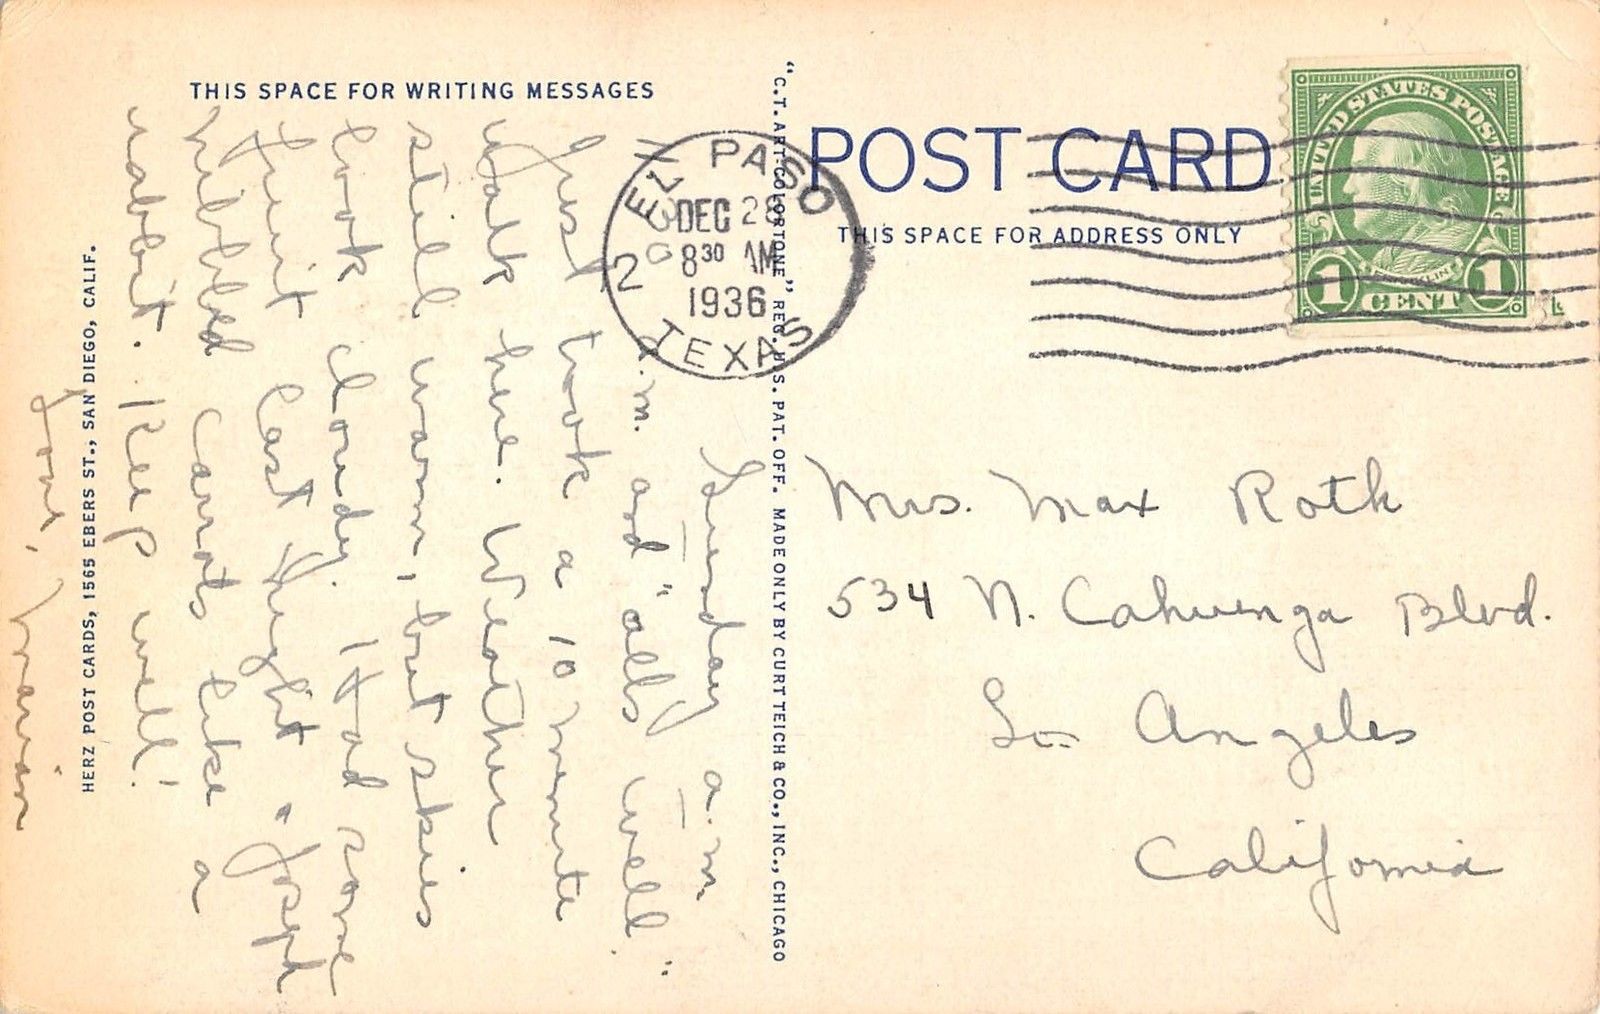 THIS SPACE FOR WRITING MESSAGES
Sunday a.m.
a.m. and "all's well."
Just took a 10 minute
walk here. Weather
still warm, but skies
look cloudy. Had some
fruit last night & Joseph
nibbled carrots like a
rabbit. Keep well!
Love,
Marian
HERZ POST CARDS, 1565 EBERS ST., SAN DIEGO, CALIF.
"C.T. ART-COLORTONE" REG. U.S. PAT. OFF. MADE ONLY BY CURT TEICH & CO., INC., CHICAGO
EL PASO
DEC 28
8 30 AM
1936
2
TEXAS
POST CARD
THIS SPACE FOR ADDRESS ONLY
UNITED STATES POSTAGE
FRANKLIN
1 CENT 1
Mrs. Max Roth
534 N. Cahuenga Blvd.
Los Angeles
California